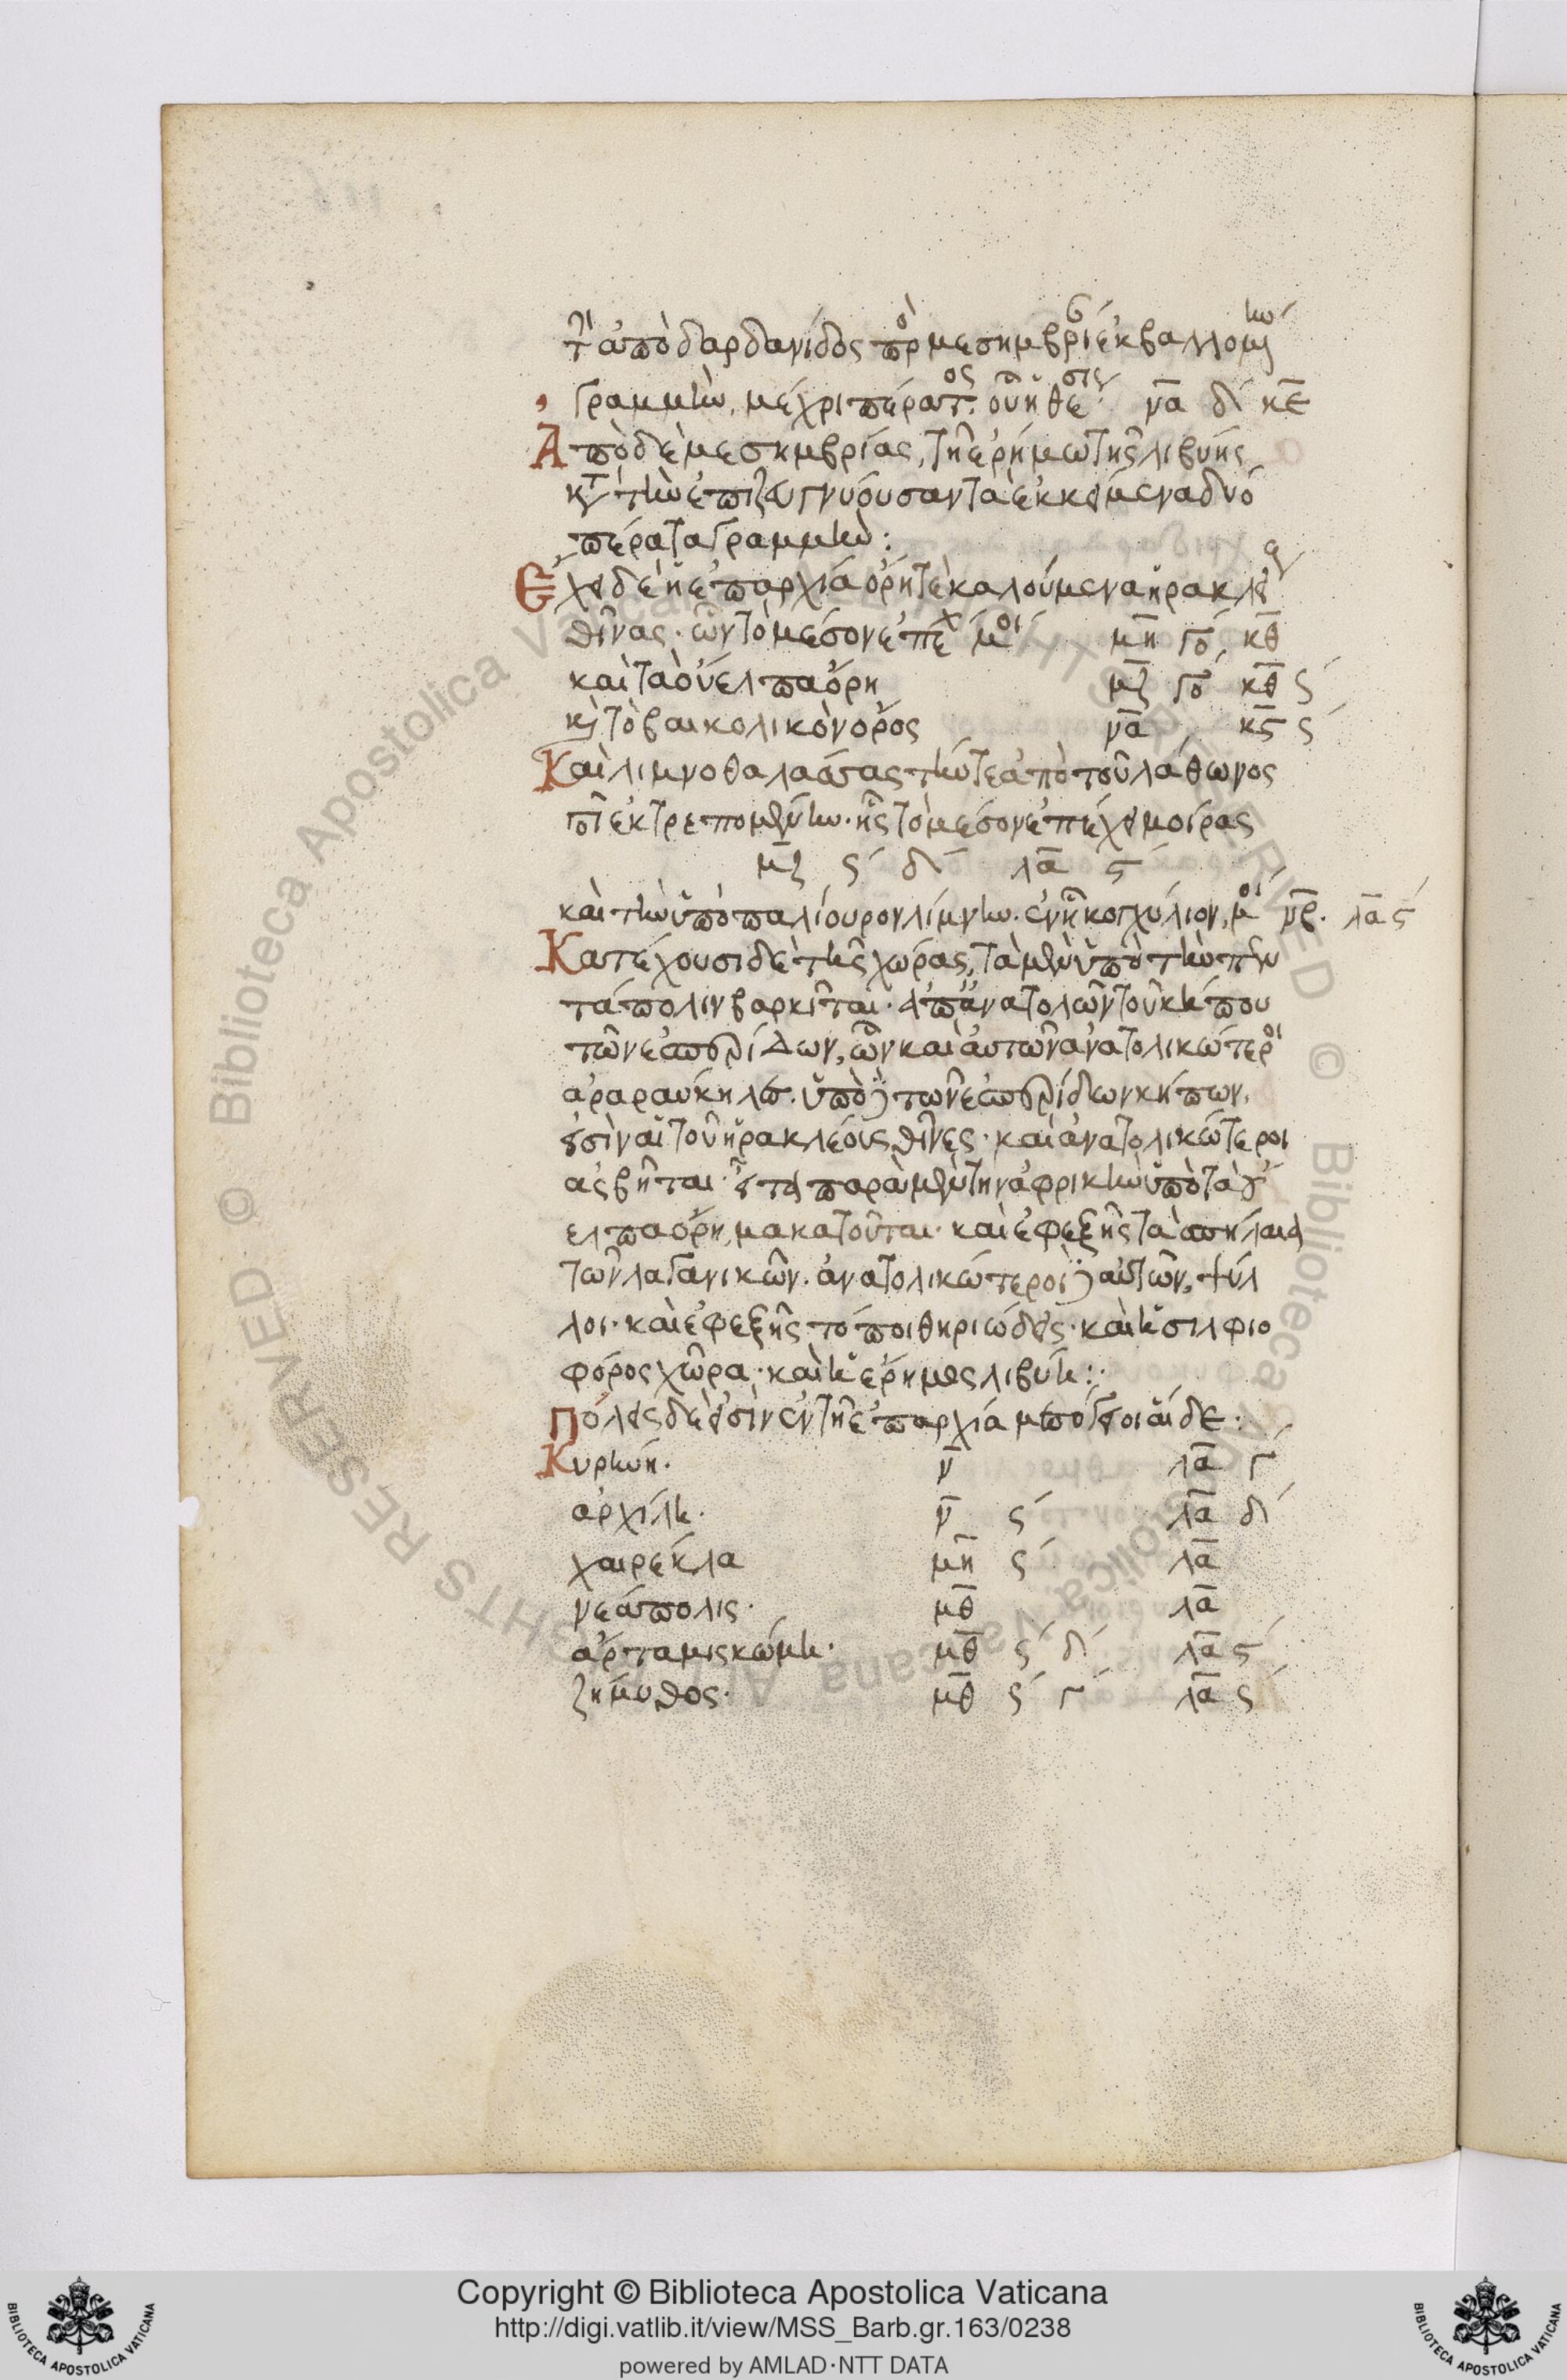 τῆ ἀπὸ δαρδανίδος πρὸς μεσημβρίαν ἐκβαλλομένην
γραμμὴν, μέχρι πέρατος οὗ ἡ θέσις να δ´ κε
Ἀπὸ δὲ μεσημβρίας, τῆ ἐρήμω τῆς λιβύης
κατὰ τὴν ἐπιζευγνύουσαν τὰ ἐκκείμενα δύο
πέρατα γραμμήν:
Ἔχει δὲ ἡ ἐπαρχία ὄρη τὲ καλούμενα ἡρακλέους
θῖνας· ὧν τὸ μέσον ἐπέχει μοί μη γο´ κθ
καὶ τὰ οὐέλπα ὄρη μζ γο´ κθ ς´
καὶ τὸ βαικολικὸν ὄρος να κς ς´
Καὶ λιμνοθαλάσσας τήν τε ἀπὸ τοῦ λάθωνος
ποταμοῦ ἐκτρεπομένην· ἧς τὸ μέσον ἐπέχει μοίρας
μζ ς´ δ´ λα ς´
καὶ τὴν ὑπὸ παλίουρον λίμνην· ἐν ἧ κογχύλιον, μοί νβ. λα ς´
Κατέχουσι δὲ τῆς χώρας, τὰ μὲν ὑπὸ τὴν πεν
τάπολιν βαρκῖται· ἀπ' ἀνατολῶν τοῦ κήπου
τῶν ἑσπερίδων, ὧν καὶ αὐτῶν ἀνατολικώτεροι
ἀραραύκηλες· ὑπὸ δὲ τῶν ἑσπερίδων κήπων,
εἰσὶν αἱ τοῦ ἡρακλέους θῖνες· καὶ ἀνατολικώτεροι
ἀσβῆται· εἶτα παρὰ μὲν τὴν ἀφρικὴν ὑπὸ τὰ οὐ
έλπα ὄρη, μακατοῦται· καὶ ἐφεξῆς τὰ σπήλαια
τῶν λαγανικῶν. ἀνατολικώτεροι δὲ αὐτῶν, ψύλ
λοι· καὶ ἐφεξῆς τόποι θηριώδεις· καὶ ἡ σιλφιο
φόρος χώρα· καὶ ἡ ἔρημος λιβύη:·
Πόλεις δὲ εἰσὶν ἐν τῆ ἐπαρχία μεσόγειοι αἵδε·
Κυρήνη· ν λα γ´
ἀρχίλη· ν ς´ λα δ´
χαιρέκλα μη ς´ λα
νεάπολις· μθ λα
ἀρταμις κώμη· μθ ς´ δ´ λα ς´
ζήμυθος· μθ ς´ γ´ λα ς´
Copyright © Biblioteca Apostolica Vaticana
http://digi.vatlib.it/view/MSS_Barb.gr.163/0238
powered by AMLAD·NTT DATA